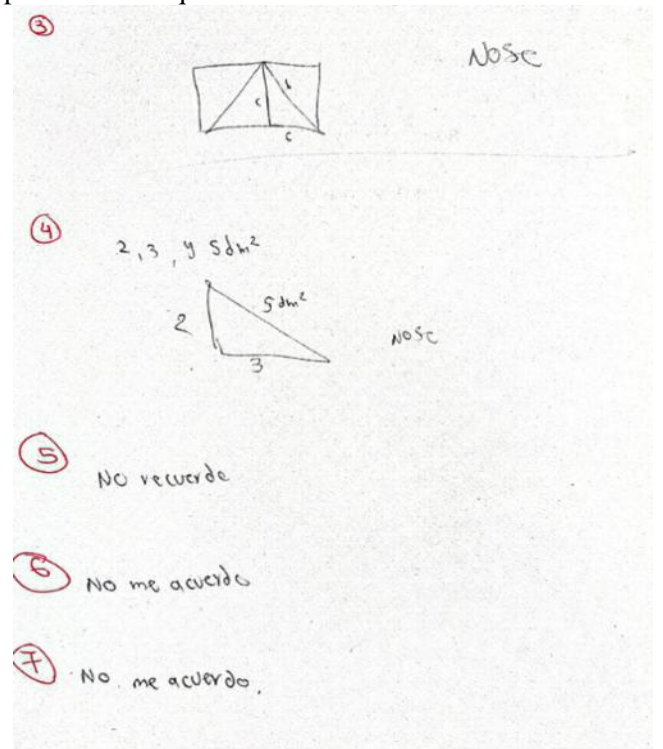 3
NOSE
b
c
c
4
2, 3, y 5dm²
5dm²
2
NOSC
3
5
NO recuerde
6
NO me acuerdo
7
NO me acuerdo.